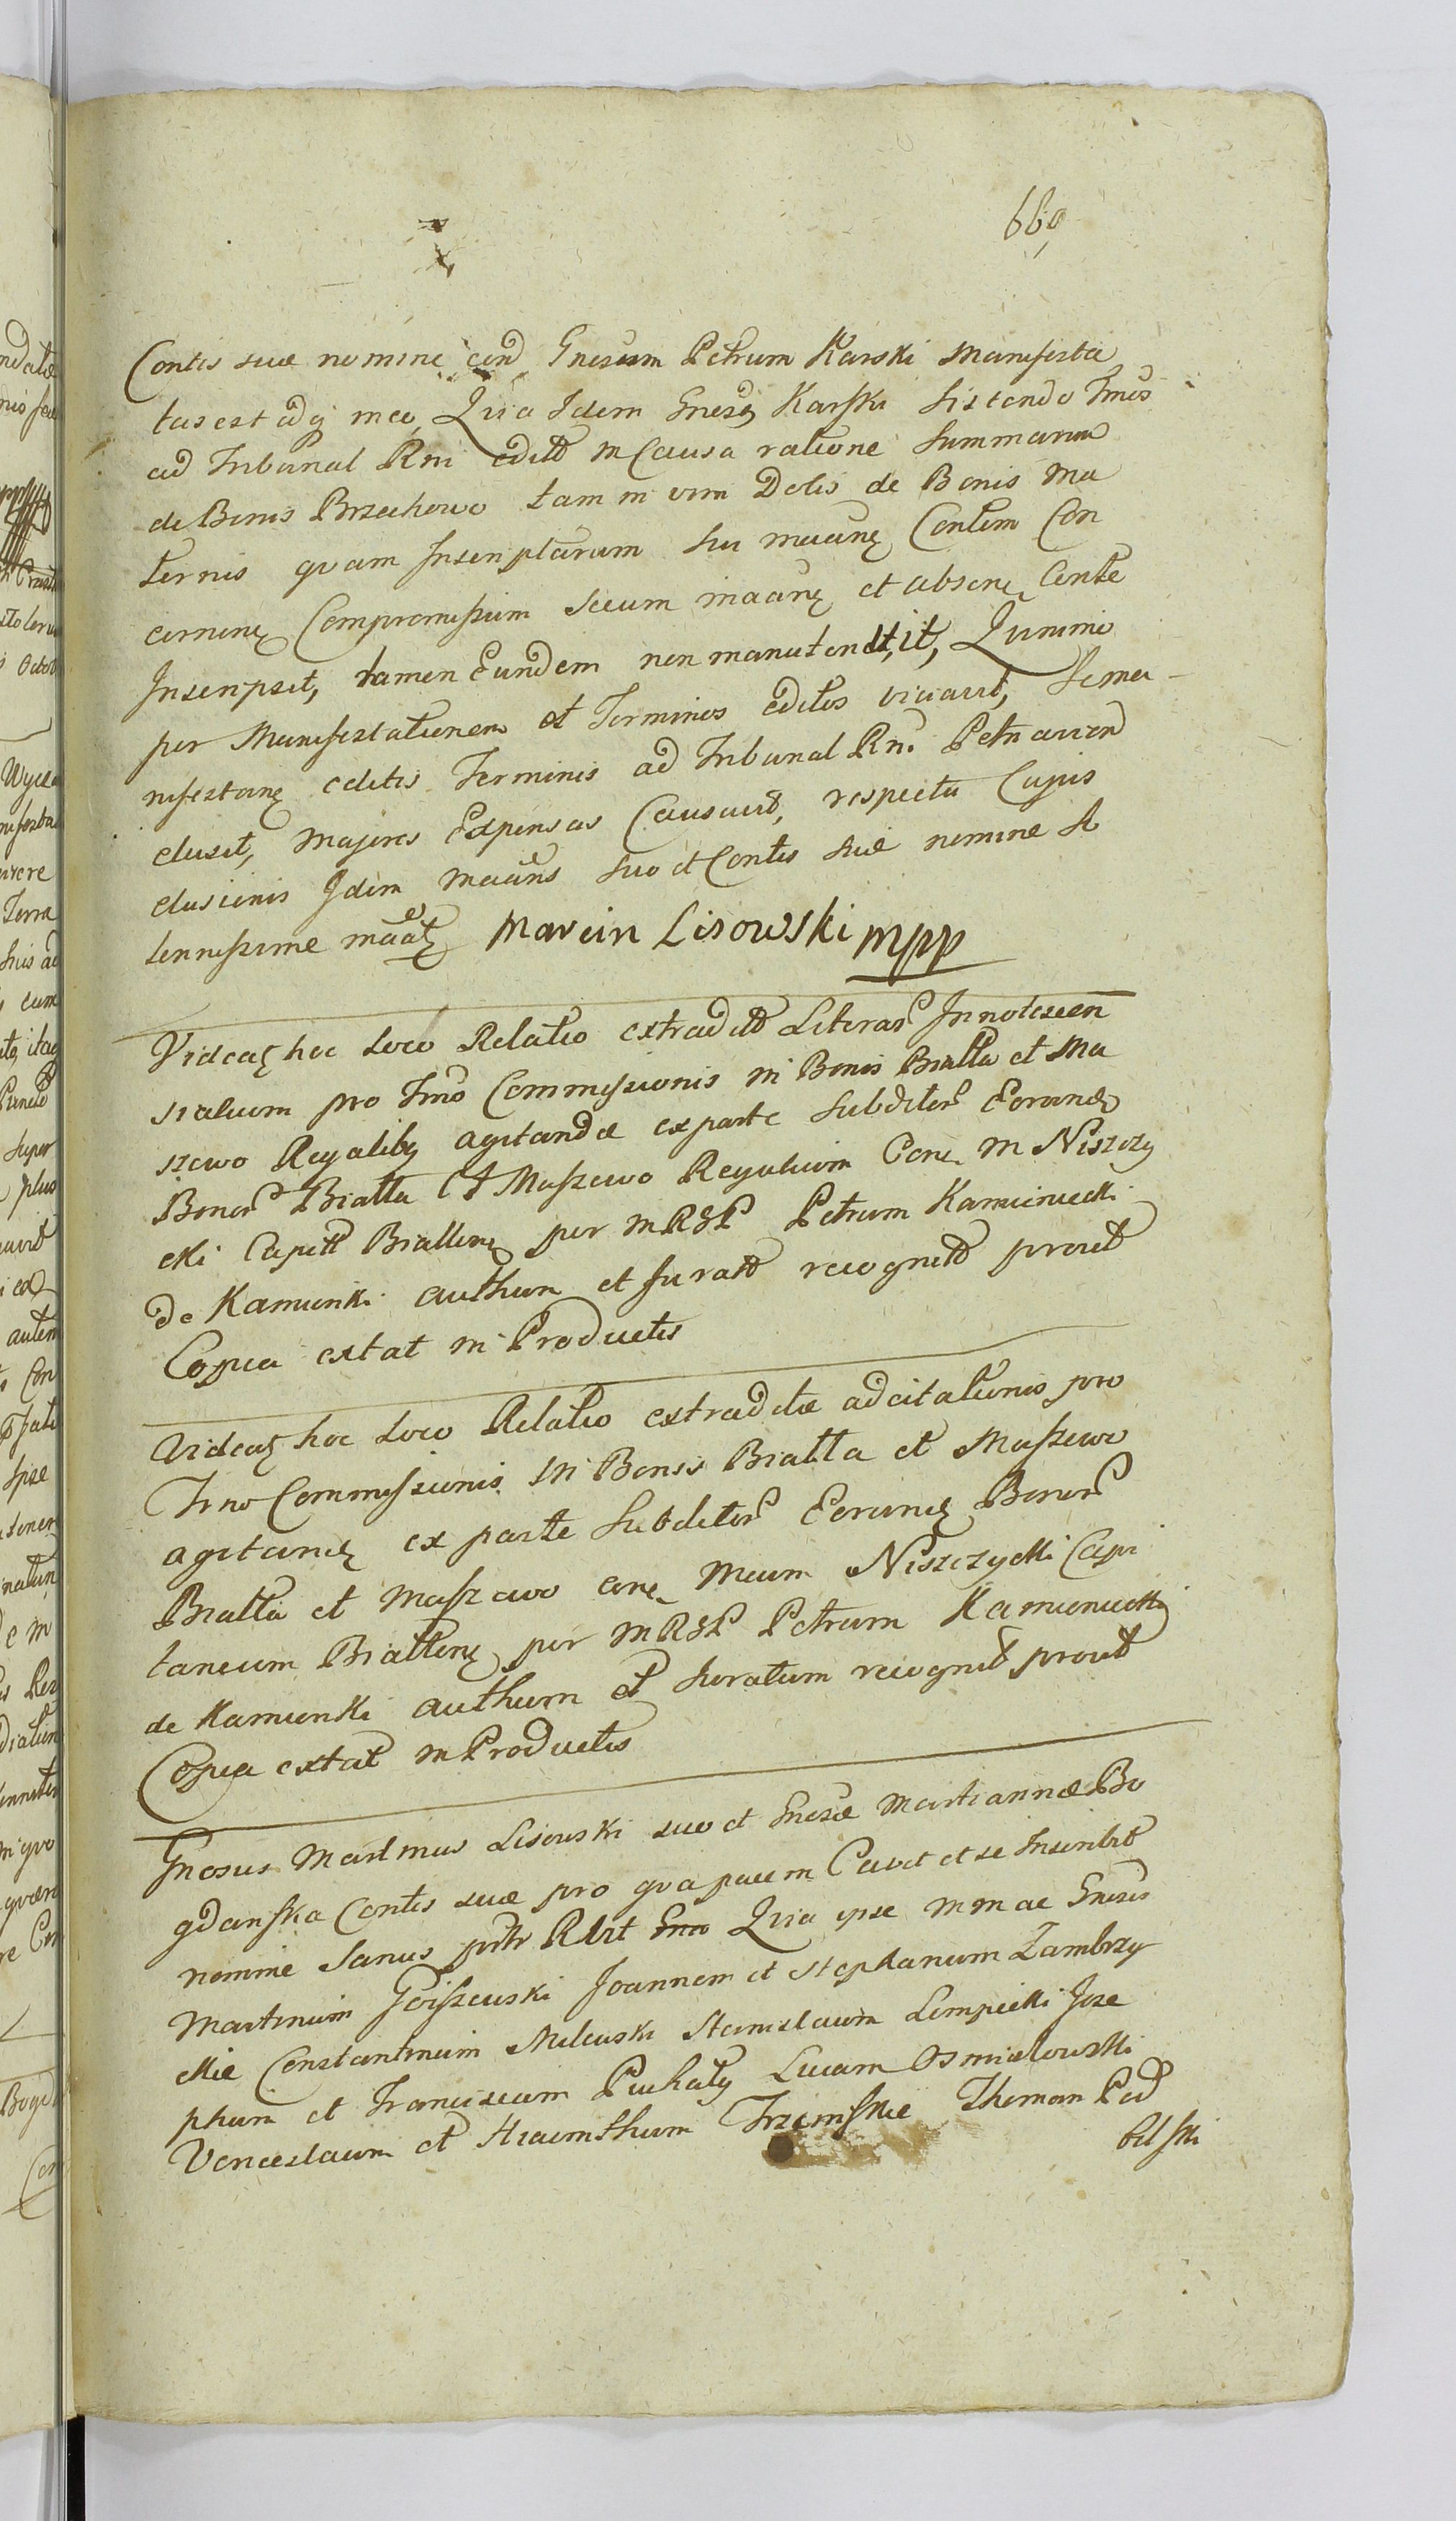 660
Contis suæ nomine con Gnesum Petrum Karski Manifesta
tus est idq meo, Quia Idem Gnesus Karski Sistendo Tmos
ad Tribunal Rni edit in Causa ratione Summarum
de Bonis Brzechowo tam in vim Dotis de Bonis Ma
ternis quam Inscriptarum sui Contem Con
cernen Compromissum secum et absen Conte
Inscripsit, tamen Eundem non manutenuit, Quinimo
per Manifestationem et Terminos editos viciavit, Se ma-
nifestan editis Terminis ad Tribunal Rni Petricovien
elusit, Majores Expensas Causavit, respectu Cujus
elusionis Idem suo et Contis suæ nomine So
lennissime Marcin Lisowski mpp
Videatz hoc Loco Relatio extradit Literar Innotescen
tialium pro Tmo Commissionis in Bonis Bialla et Ma
szewo Regalibus agitandæ ex parte Subditor Eorund
Bonor Bialla et Maszewo Regalium Con M Niszczy
cki Capitt Biallen per MRSP Petrum Kamieniecki
de Kamionki authum et Jurat recognit prout
Copia extat in Productis
Videatz hoc Loco Relatio extraditæ adcitationis pro
Tmo Commissionis in Bonis Bialla et Maszewo
agitan ex parte Subditor Eorund Bonor
Bialla et Maszewo con Meum Niszczycki Capi
taneum Biallen per MRSP Petrum Kamieniecki
de Kamionki authum et Juratum recognit prout
Copia extat in Productis
Gnosus Martinus Lisowski suo et Gnosæ Mariannæ Bo
gdanska Contis suæ pro qua pacem Cavet et se Inscribit
nomine Sanus Rlvit Quia ipse Mm ac Gnesos
Martinum Goiszewski Joannem et Stephanum Zambrzy
ckie Constantinum Milewski Stanislaum Lempicki Jose
phum et Franciscum Pluchaty Lucam Osmialowski
Venceslaum et Hiacinthum Trzcinskie Thomam Pod
bilski